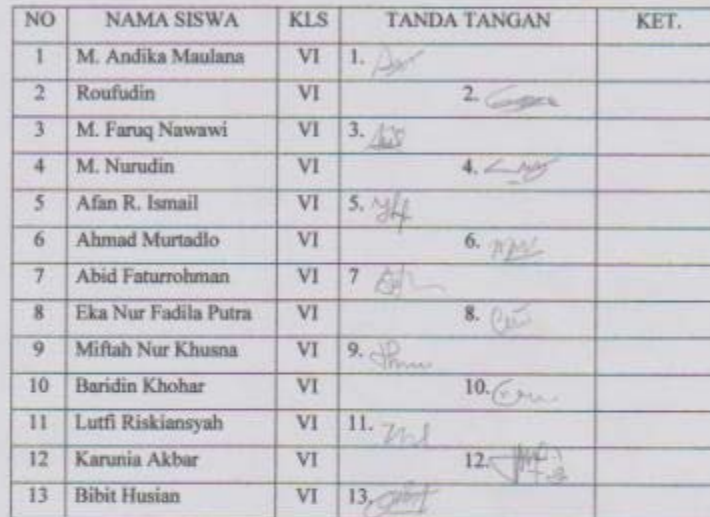 NO NAMA SISWA KLS TANDA TANGAN KET.
1 M. Andika Maulana VI 1.
2 Roufudin VI 2.
3 M. Faruq Nawawi VI 3.
4 M. Nurudin VI 4.
5 Afan R. Ismail VI 5.
6 Ahmad Murtadlo VI 6.
7 Abid Faturrohman VI 7
8 Eka Nur Fadila Putra VI 8.
9 Miftah Nur Khusna VI 9.
10 Baridin Khohar VI 10.
11 Lutfi Riskiansyah VI 11.
12 Karunia Akbar VI 12.
13 Bibit Husian VI 13.